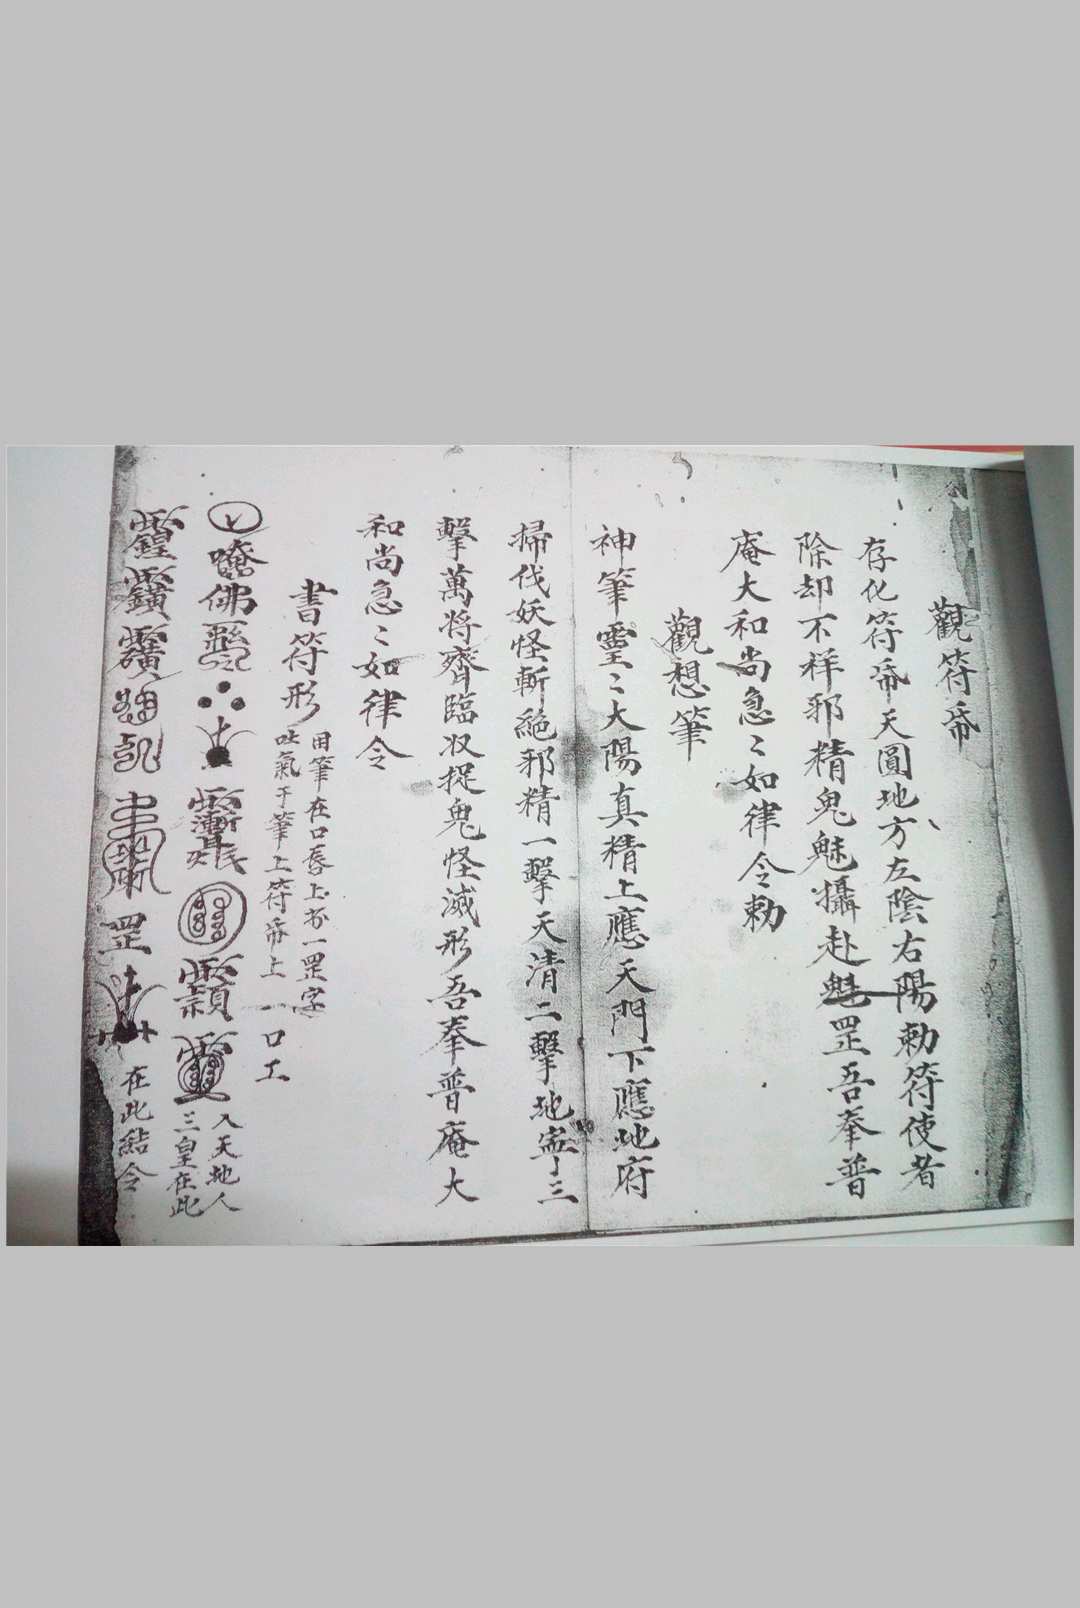 觀符帋
存化符帋天圓地方左陰右陽勅符使者
除却不祥邪精鬼魅攝赴魁罡吾奉普
庵大和尚急〻如律令勅
觀想筆
神筆靈〻大陽真精上應天門下應地府
掃伐妖怪斬絕邪精一擊天清二擊地寧三
擊萬將齊臨收捉鬼怪滅形吾奉普庵大
和尚急〻如律令
書符形
用筆在口唇上書一罡字
吐氣于筆上符帋上
一口工
佛
入天地人
三皇在此
罡
在此結令